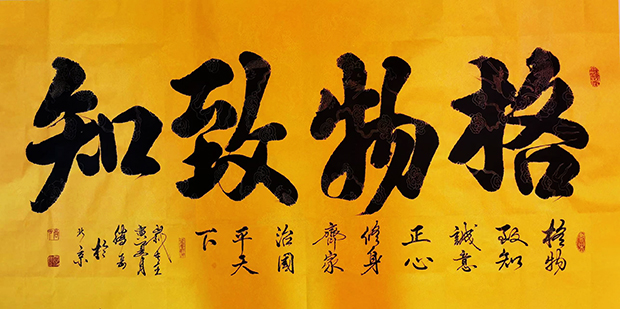 格物致知
格物
致知
誠意
正心
修身
齊家
治國
平天
下
於
北京